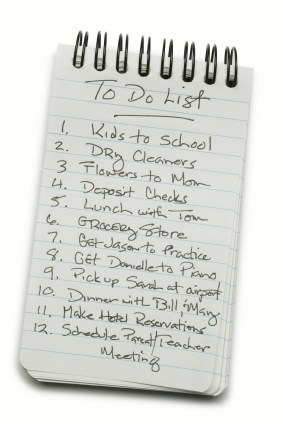 To Do List
1. Kids to School
2. Dry Cleaners
3 Flowers to Mom
4. Deposit Checks
5. Lunch with Tom
6. Grocery Store
7. Get Jason to Practice
8. Get Danielle to Piano
9. Pick up Sarah at airport
10. Dinner with Bill & Mary
11. Make Hotel Reservations
12. Schedule Parent/Teacher
Meeting